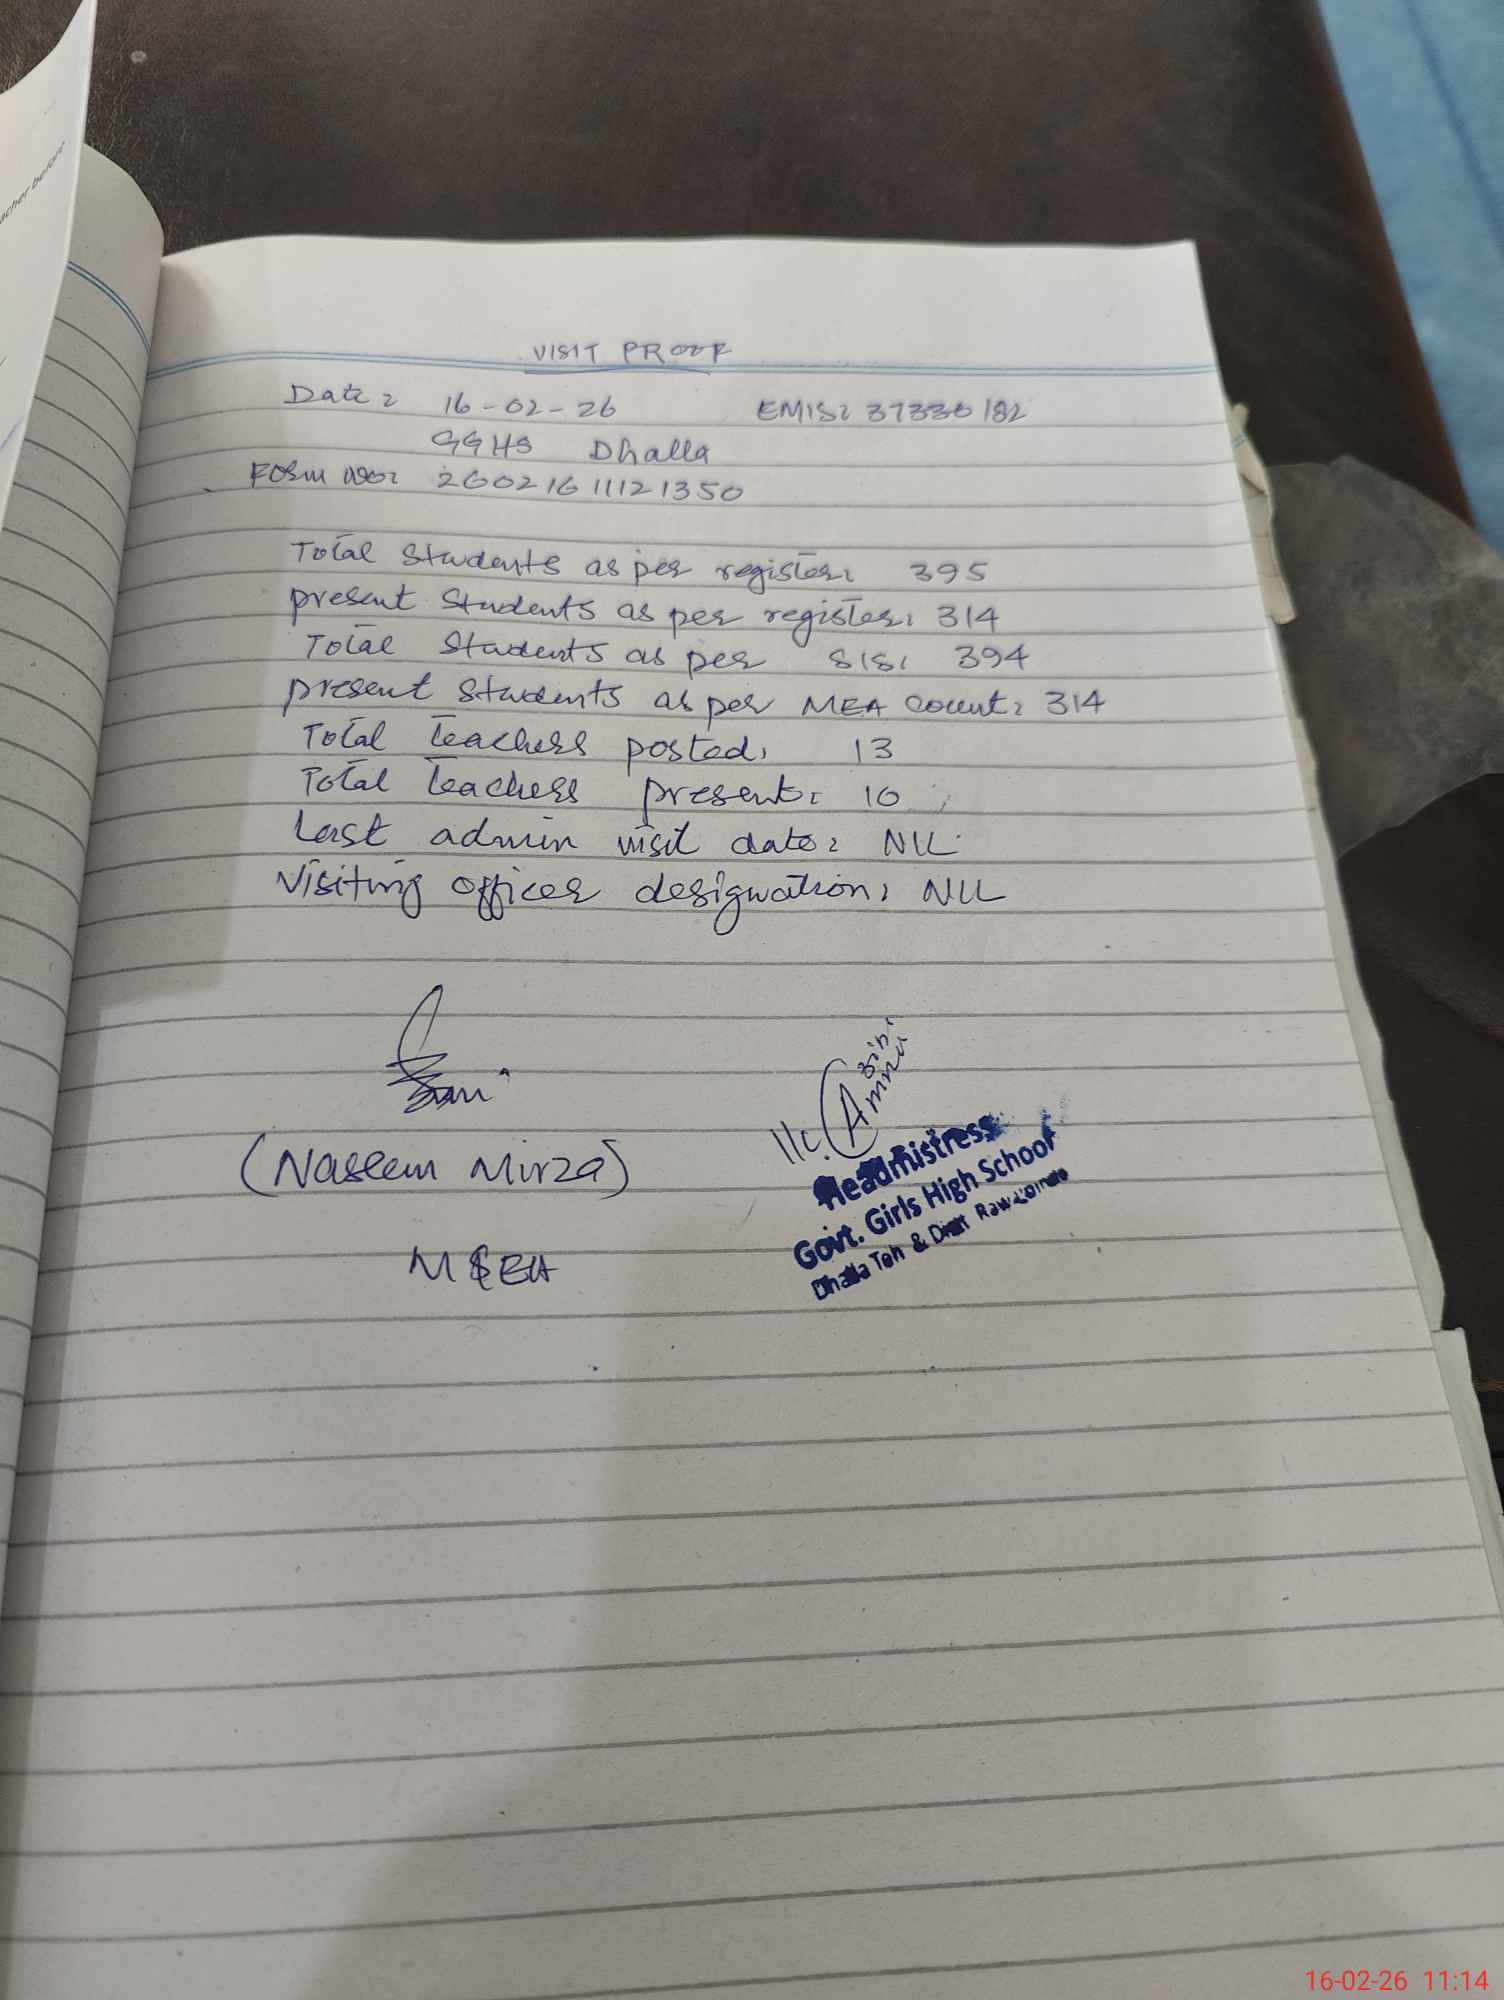 acher before
VISIT PROOF
Date: 16-02-26 EMIS: 37330182
GGHS Dhalla
Form No: 26021611121350
Total students as per register: 395
present students as per register: 314
Total students as per SIS: 394
present students as per MEA count: 314
Total teachers posted: 13
Total teachers present: 10
Last admin visit date: NIL
Visiting officer designation: NIL
(Naseem Mirza)
MEA
I/c. Amna Bibi
Headmistress
Govt. Girls High School
Dhalla Teh & Distt Rawalpindi
16-02-26 11:14